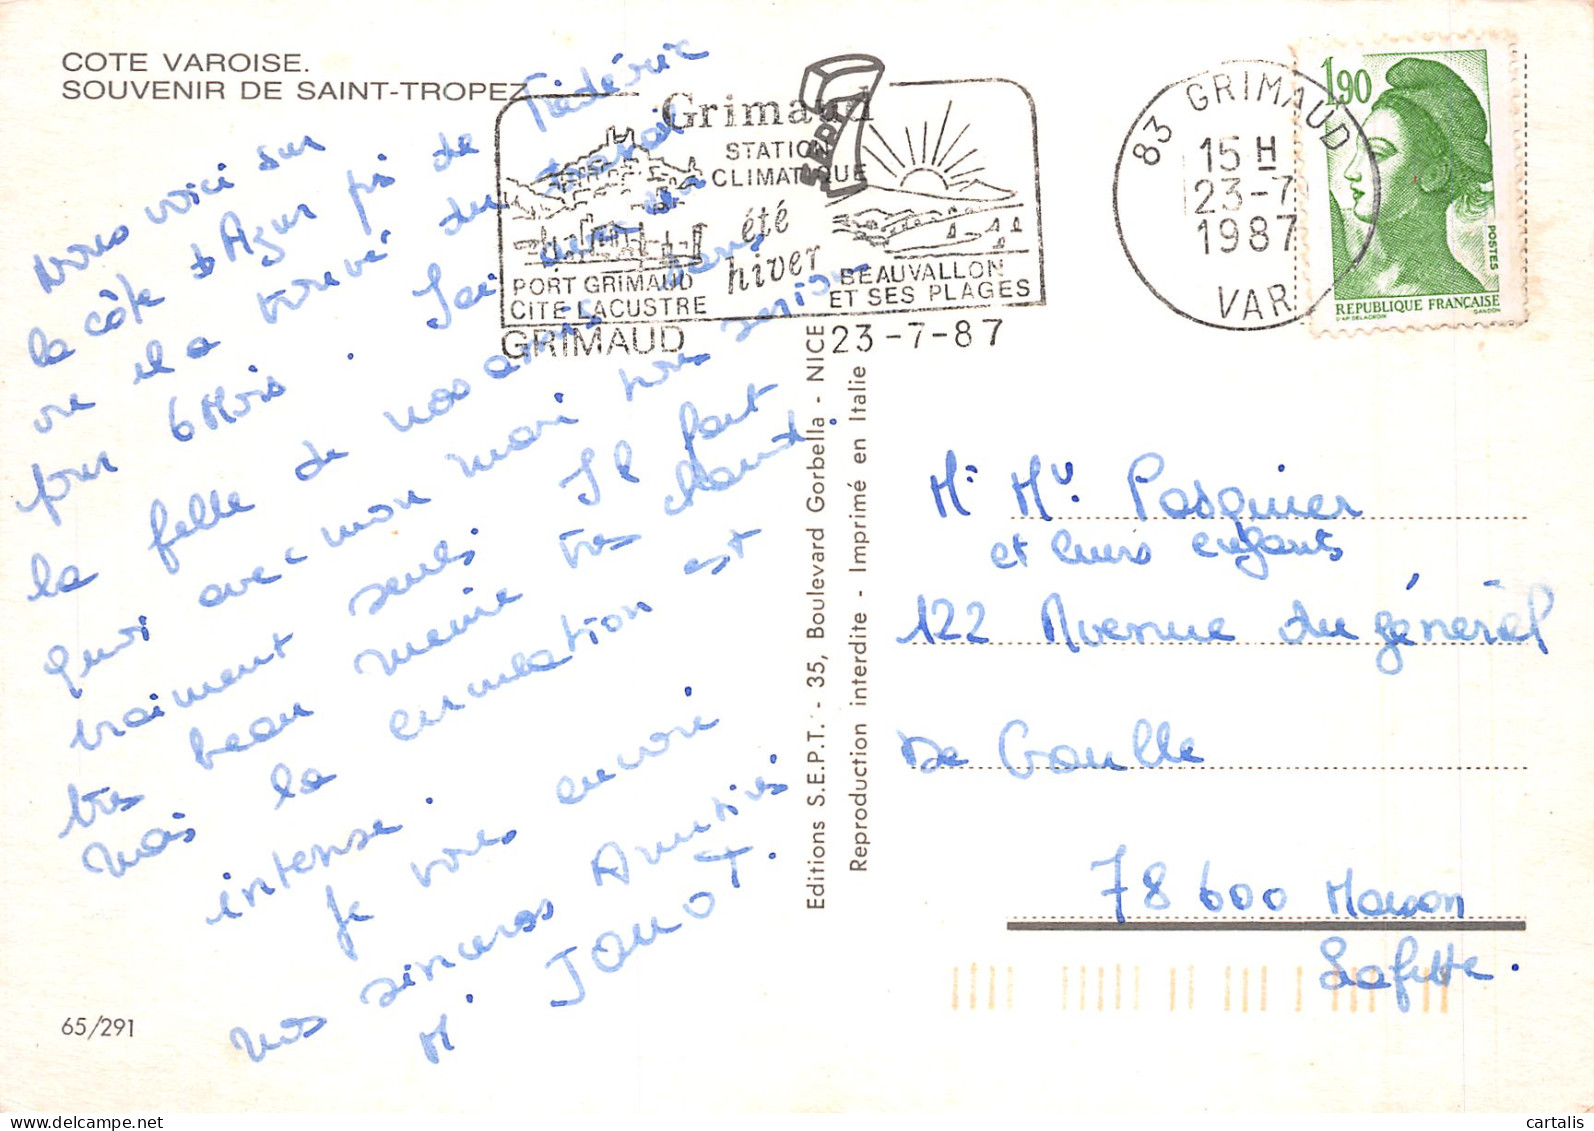 COTE VAROISE.
SOUVENIR DE SAINT-TROPEZ
Nous voici sur
la côte d'Azur près de Frédéric
ou il a trouvé du travail
pour 6 Mois. J'ai
la fille de nos amis dans
quoi avec mon mari nous serions
vraiment seuls. Il fait
très beau meme très chaud.
Mais la circulation est
intense.
Je vous envoie
nos sincères Amitiés
M. JANOT.
65/291
Grimaud
STATION
CLIMATIQUE
été
hiver
PORT GRIMAUD
CITE LACUSTRE
BEAUVALLON
ET SES PLAGES
GRIMAUD
23-7-87
SEPT
83 GRIMAUD
15 H
23-7
1987
VAR
1,90
POSTES
REPUBLIQUE FRANÇAISE
D'AP. DELACROIX
GANDON
Editions S.E.P.T. - 35, Boulevard Gorbella - NICE
Reproduction interdite - Imprimé en Italie
Mr Me. Pasquier
et leurs enfants
122 Avenue du général
De Gaulle
78 600 Maison
Lafitte.
cartalis